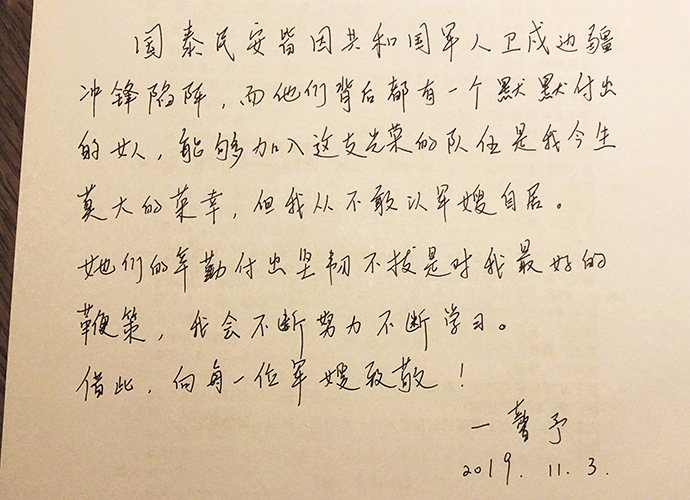 国泰民安皆因共和国军人卫戍边疆
冲锋陷阵，而他们背后都有一个默默付出
的女人，能够加入这支光荣的队伍是我今生
莫大的荣幸，但我从不敢以军嫂自居。
她们的辛勤付出坚韧不拔是对我最好的
鞭策，我会不断努力不断学习。
借此，向每一位军嫂致敬！
一 馨予
2019. 11. 3.